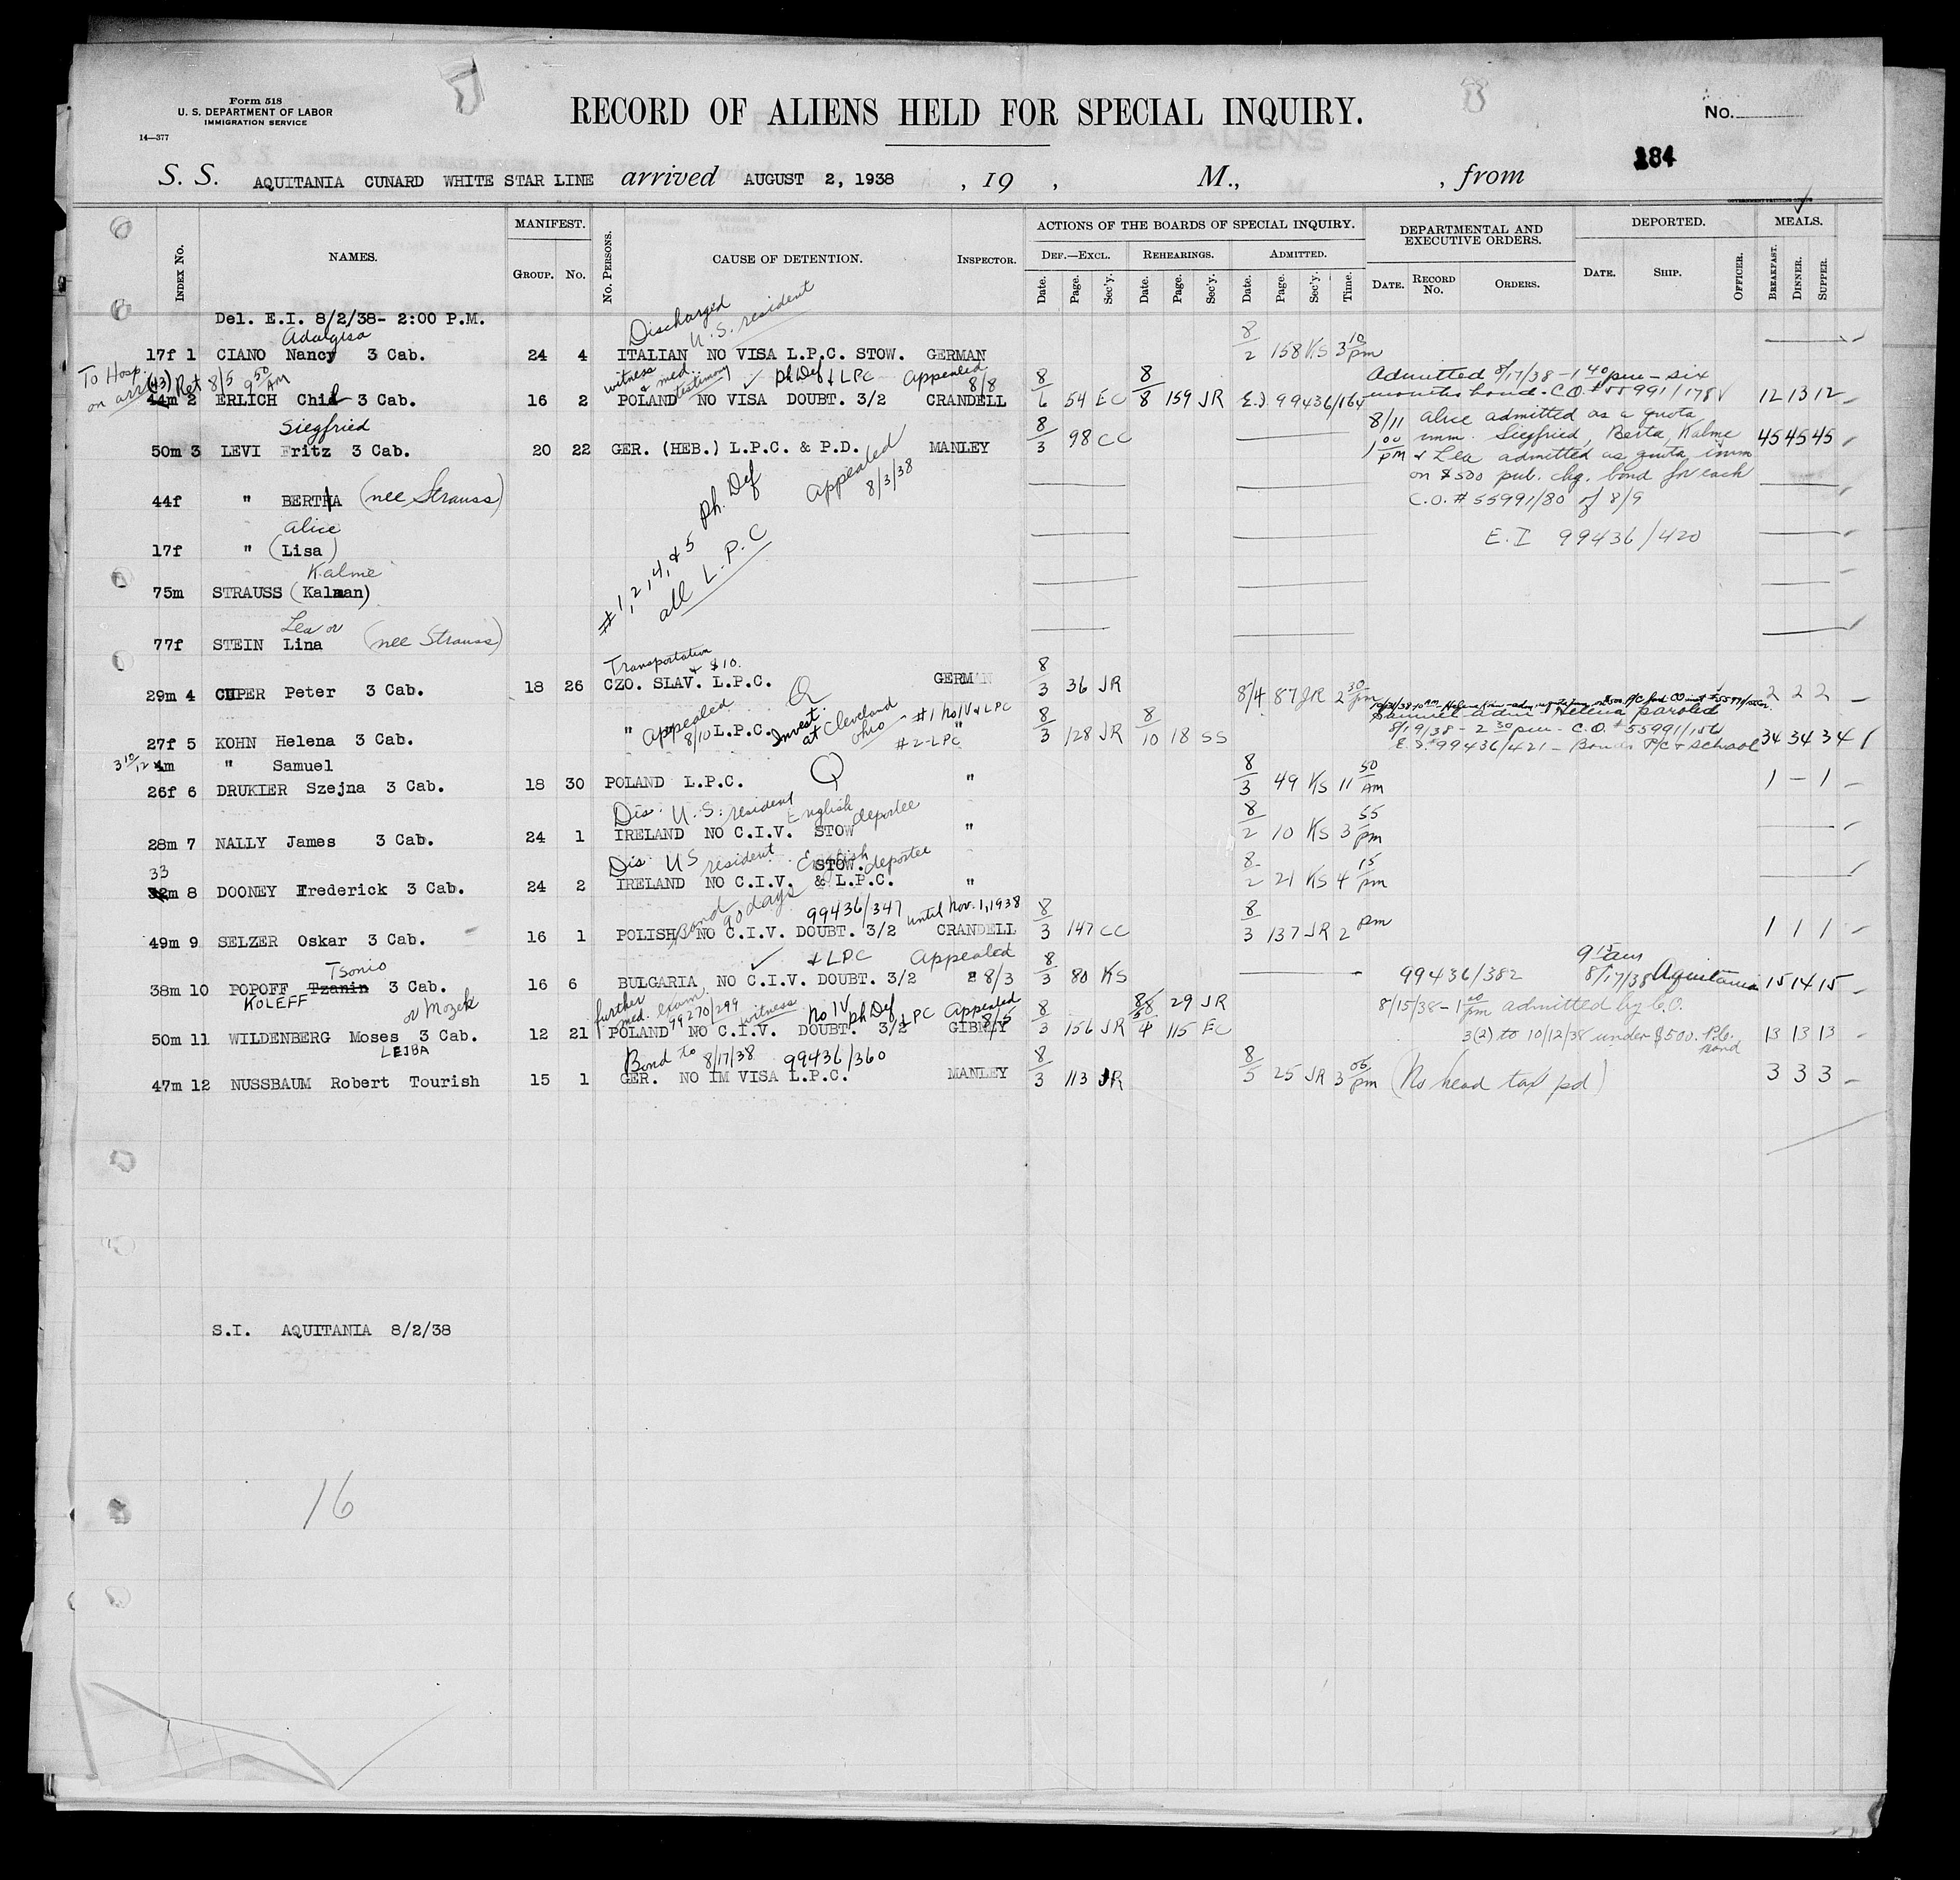 Form 518
U. S. DEPARTMENT OF LABOR
IMMIGRATION SERVICE
14—377
RECORD OF ALIENS HELD FOR SPECIAL INQUIRY.
No.
184
S. S. AQUITANIA CUNARD WHITE STAR LINE arrived AUGUST 2, 1938 , 19 , M., , from
INDEX No. NAMES. MANIFEST. GROUP. No. No. PERSONS. CAUSE OF DETENTION. INSPECTOR.
ACTIONS OF THE BOARDS OF SPECIAL INQUIRY.
DEF.—EXCL. REHEARINGS. ADMITTED.
Date. Page. Sec'y. Date. Page. Sec'y. Date. Page. Sec'y. Time.
DEPARTMENTAL AND EXECUTIVE ORDERS.
DATE. RECORD No. ORDERS.
DEPORTED.
DATE. SHIP. OFFICER.
MEALS.
BREAKFAST. DINNER. SUPPER.
Del. E.I. 8/2/38- 2:00 P.M.
Discharged
U.S. resident
Adalgisa
17f 1 CIANO Nancy 3 Cab. 24 4 ITALIAN NO VISA L.P.C. STOW. GERMAN 8/2 158 KS 3 10/pm
To Hosp. on arr (43) Ret 8/5 9 50 AM
witness & med. testimony ✓ Ph Def & LPC Appealed 8/8
44m 2 ERLICH Chil 3 Cab. 16 2 POLAND NO VISA DOUBT. 3/2 CRANDELL 8/6 54 EC 8/8 159 JR E.I. 99436/164 12 13 12
Admitted 8/17/38 - 1 40 pm - six
months bond. C.O. #55991/178
Siegfried
50m 3 LEVI Fritz 3 Cab. 20 22 GER. (HEB.) L.P.C. & P.D. MANLEY 8/3 98 CC 45 45 45
8/11 Alice admitted as a quota
1 00 pm imm. Siegfried, Berta, Kalme
& Lea admitted as quota imm
on $500 pub. chg. bond for each
C.O. #55991/80 of 8/9
Appealed 8/3/38
44f " BERTHA (nee Strauss)
#1, 2, 4, & 5 Ph. Def
all L.P.C
Alice
17f " (Lisa)
E.I 99436/420
Kalme
75m STRAUSS (Kalman)
Lea or
77f STEIN Lina (nee Strauss)
Transportation & $10.
29m 4 CUPER Peter 3 Cab. 18 26 CZO. SLAV. L.P.C. GERMAN 8/3 36 JR 8/4 87 JR 2 30/pm 2 2 2
Samuel adm. & Helena paroled
8/19/38 - 2 30 pm. C.O. #55991/156
E.I. 99436/421 - Bonds P/C & School
Appealed 8/10 Invest. at Cleveland Ohio - #1 No IV & LPC
#2-LPC
27f 5 KOHN Helena 3 Cab. " L.P.C. " 8/3 128 JR 8/10 18 SS 34 34 34
3 10/12 4m " Samuel
26f 6 DRUKIER Szejna 3 Cab. 18 30 POLAND L.P.C. " 8/3 49 KS 11 50/AM 1 - 1
Dis. U.S. resident English deportee
28m 7 NALLY James 3 Cab. 24 1 IRELAND NO C.I.V. STOW " 8/2 10 KS 3 55/pm
33
Dis. US resident. English deportee
32m 8 DOONEY Frederick 3 Cab. 24 2 IRELAND NO C.I.V. STOW. & L.P.C. " 8/2 21 KS 4 15/pm
Bond 90 days 99436/347 until Nov. 1, 1938
49m 9 SELZER Oskar 3 Cab. 16 1 POLISH NO C.I.V. DOUBT. 3/2 CRANDELL 8/3 147 CC 8/3 137 JR 2 pm 1 1 1
Tsonio
✓ & LPC Appealed 8/3
38m 10 POPOFF Tzanin 3 Cab. 16 6 BULGARIA NO C.I.V. DOUBT. 3/2 " 8/3 80 KS 99436/382 9 15 am 8/17/38 Aquitania 15 14 15
KOLEFF
or Mozek
further med. exam. 99270/299 witness No IV Ph Def & LPC Appealed 8/5
50m 11 WILDENBERG Moses 3 Cab. 12 21 POLAND NO C.I.V. DOUBT. 3/2 GIBNEY 8/3 156 JR 8/4 115 EC 13 13 13
29 JR
8/15/38 - 1 20 pm admitted by C.O.
3(2) to 10/12/38 under $500. P.C. bond
LEJBA
Bond to 8/17/38 99436/360
47m 12 NUSSBAUM Robert Tourish 15 1 GER. NO IM VISA L.P.C. MANLEY 8/3 113 JR 8/5 25 JR 3 05/pm (No head tax pd) 3 3 3
S.I. AQUITANIA 8/2/38
16